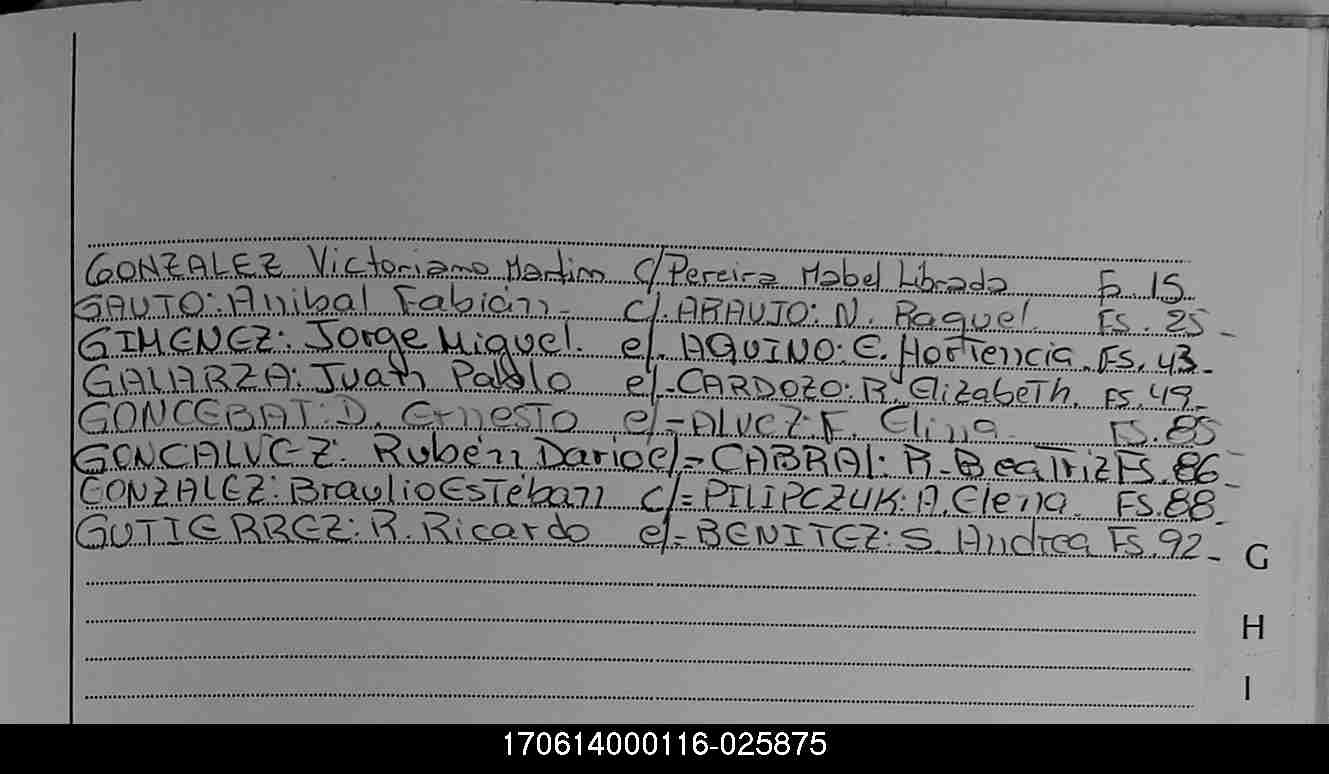 GONZALEZ Victoriano Martin c/ Pereira Mabel Librada F. 15
GAUTO: Anibal Fabián - c/. ARAUJO: N. Raquel. FS. 25 -
GIMENEZ: Jorge Miguel. c/. AQUINO: E. Hortencia. FS. 43 -
GALARZA: Juan Pablo c/- CARDOZO: R. Elizabeth. FS. 49 -
GONCEBAT: D. Ernesto c/- ALVEZ: F. Elina - FS. 85 -
GONCALVEZ: Rubén Dario c/= CABRAL: R. Beatriz FS. 86 -
GONZALEZ: Braulio Esteban c/= PILIPCZUK: A. Elena. FS. 88 -
GUTIERREZ: R. Ricardo c/= BENITEZ: S. Andrea FS. 92 -
G
H
I
170614000116-025875